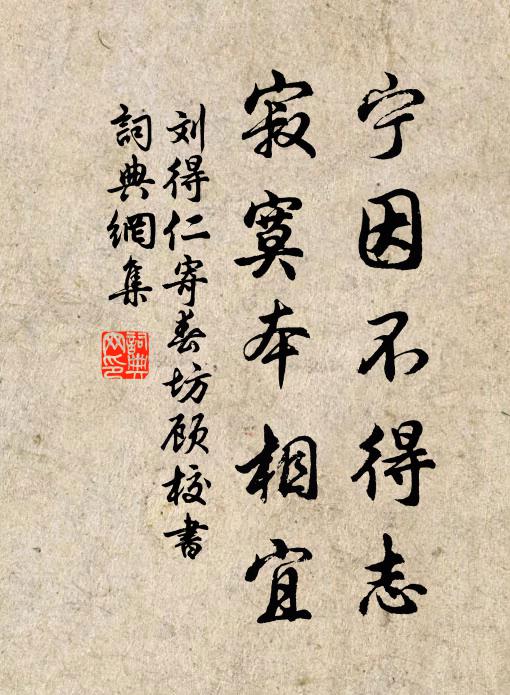 宁因不得志
寂寞本相宜
刘得仁寄春坊顾校書
詞典網集
詞典网印